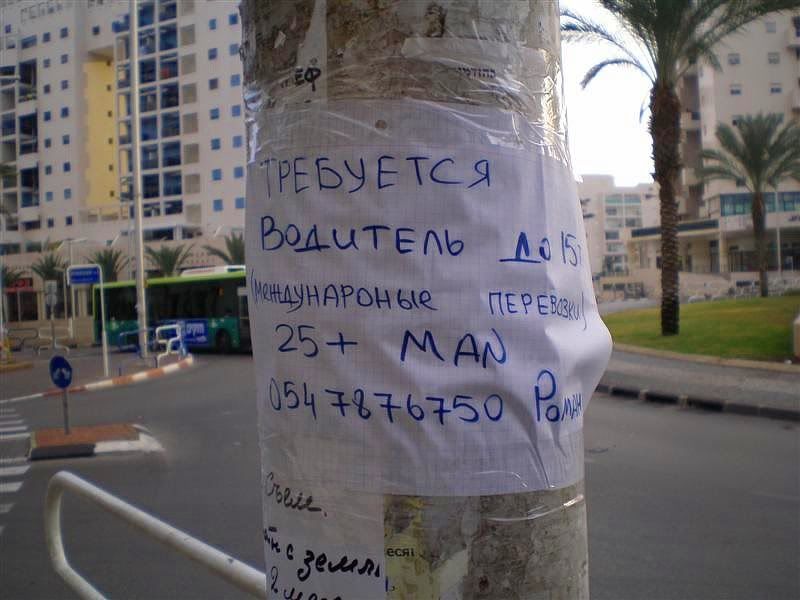 ЕФ
ТРЕБУЕТСЯ
ВОДИТЕЛЬ ДО 15т
(МЕЖДУНАРОНЫЕ ПЕРЕВОЗКИ)
25+ MAN
0547876750 РОМАН
Съём.
с земли
есяц